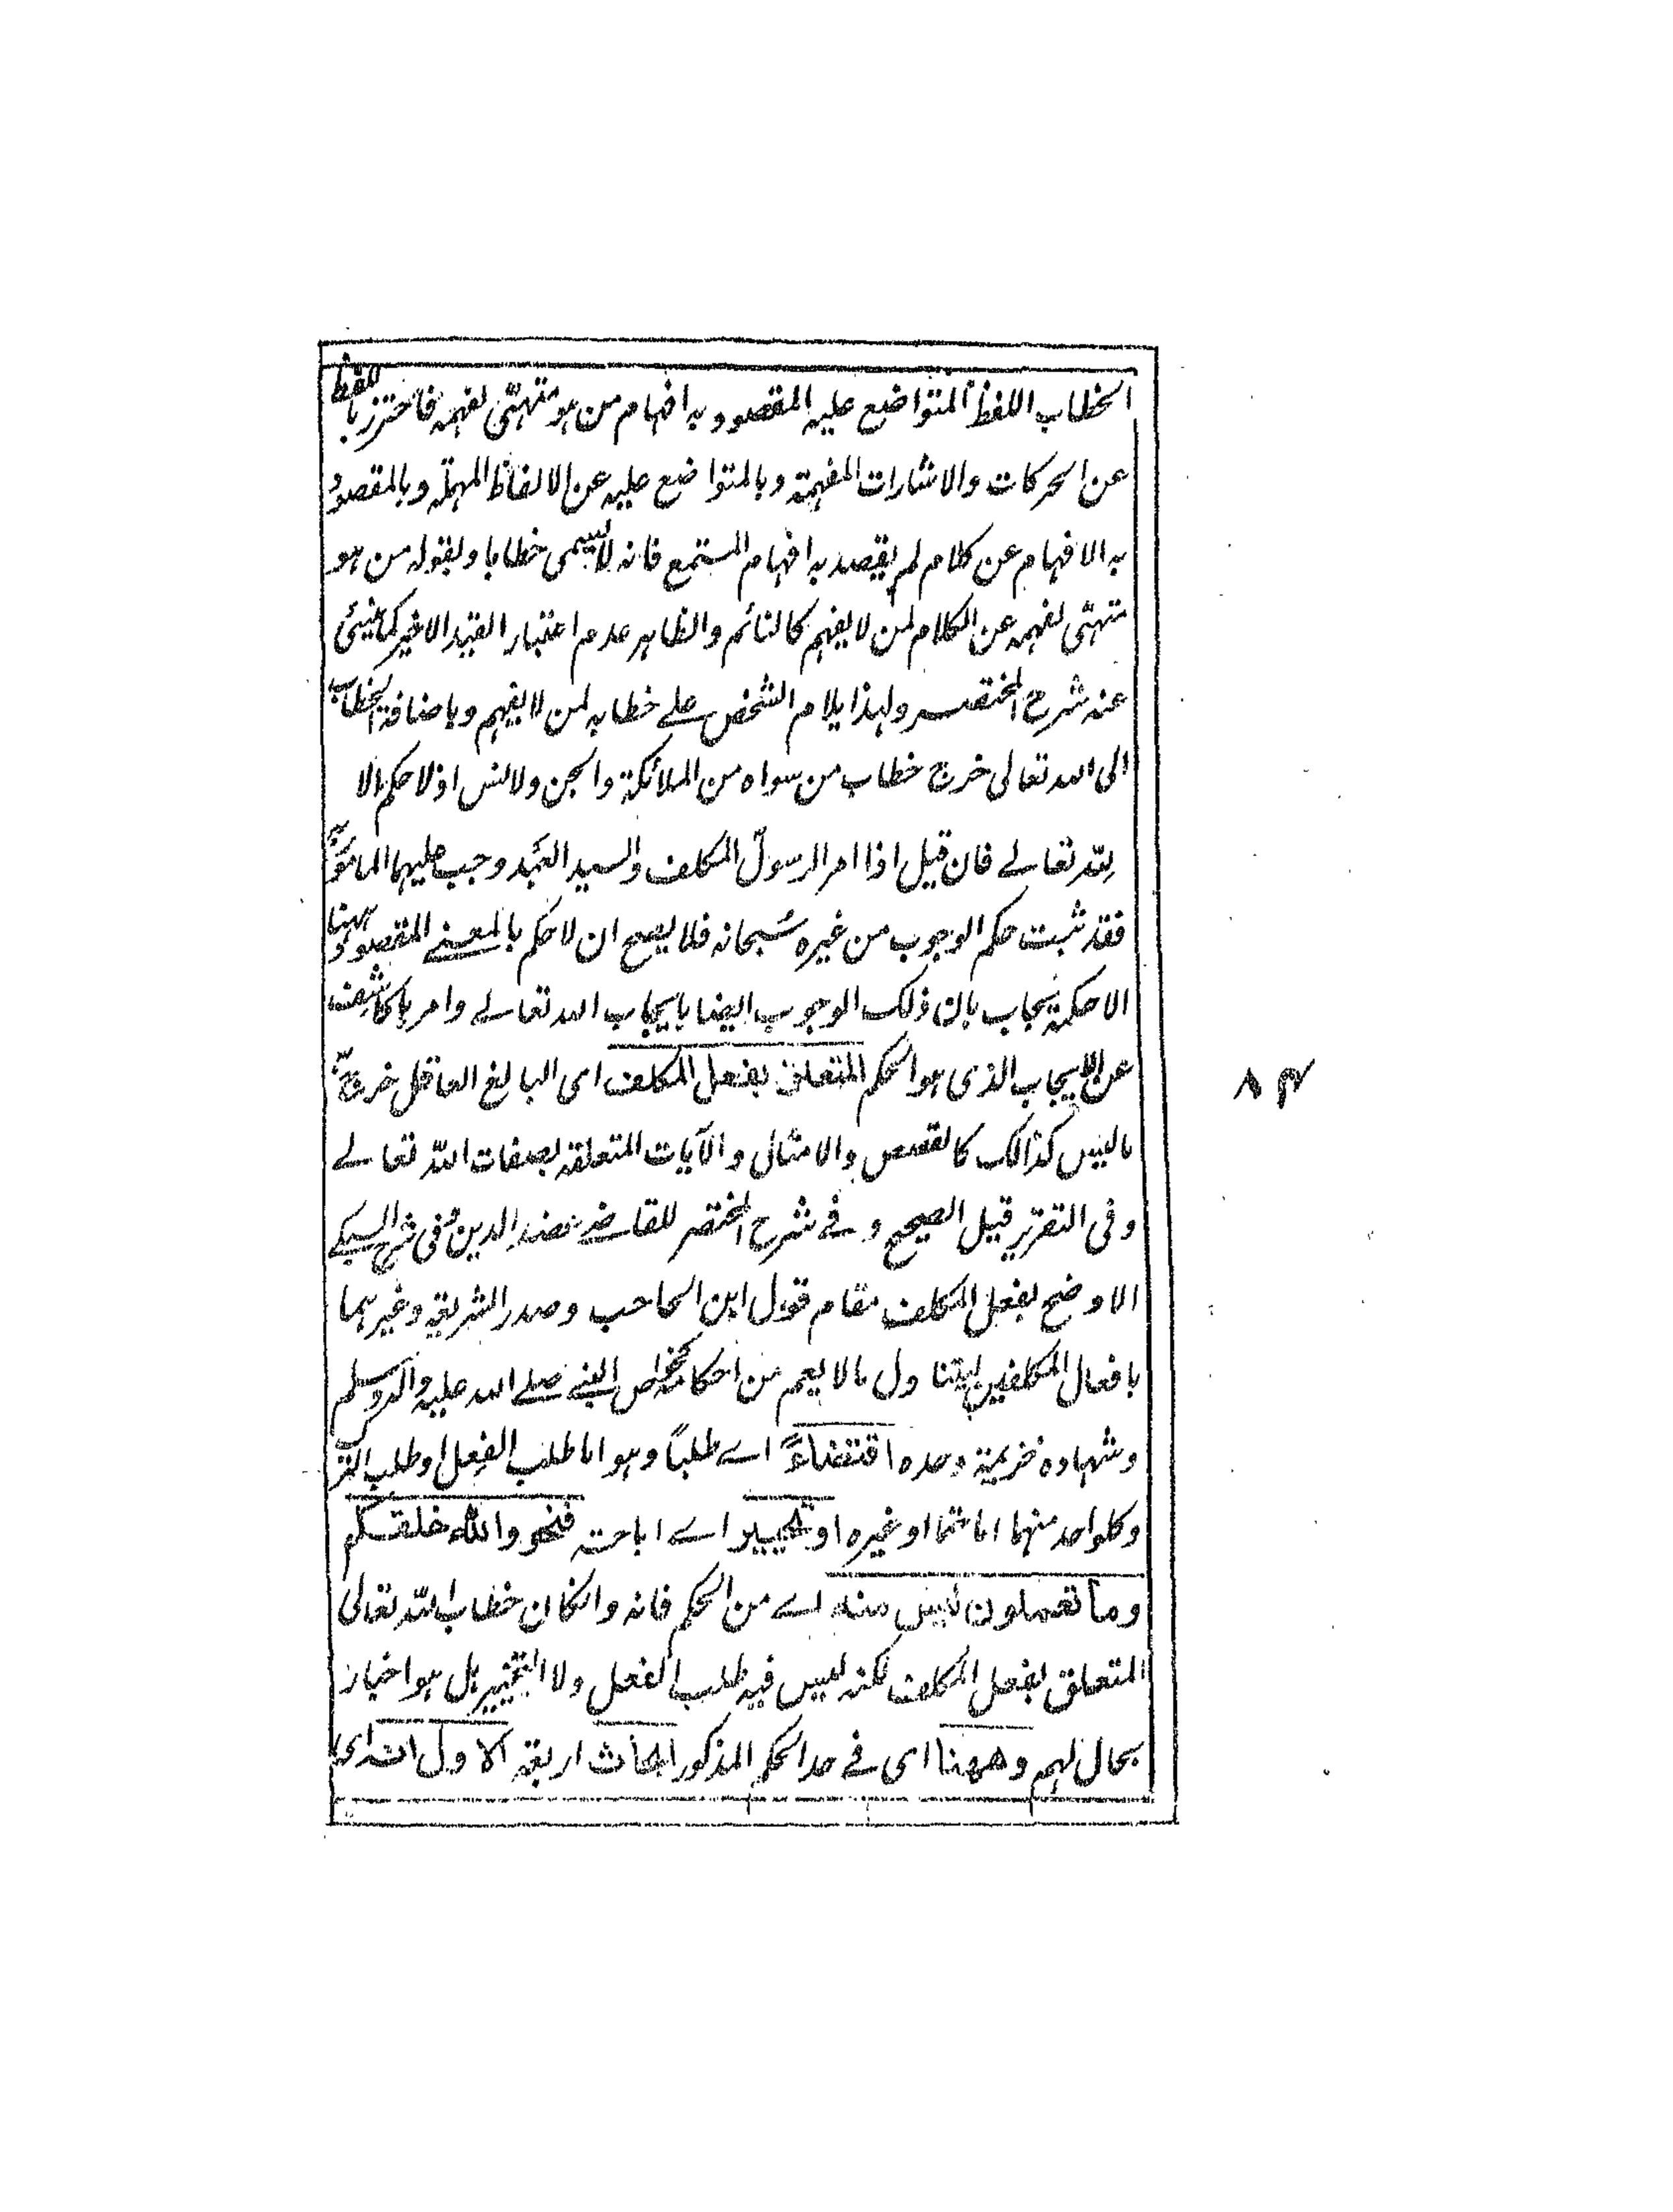 الخطاب اللفظ المتواضع عليه المقصود به افهام من هو متهيّئ لفهمه فاحترز باللفظ
عن الحركات والاشارات المفهمة وبالمتواضع عليه عن الالفاظ المهملة وبالمقصود
به الافهام عن كلام لم يقصد به افهام المستمع فانه لا يسمى خطابا وبقوله من هو
متهيّئ لفهمه عن الكلام لمن لا يفهم كالنائم والظاهر عدم اعتبار القيد الاخير كما ينبئ
عنه شرح المختصر ولهذا يلام الشخص على خطابه لمن لا يفهم وباضافة الخطاب
الى الله تعالى خرج خطاب من سواه من الملائكة والجن ولانس اذ لا حكم الا
لله تعالے فان قيل اذا امر الرسول المكلف والسيد العبد وجب عليهما المامور به
فقد ثبت حكم الوجوب من غيره سبحانه فلا يصح ان لا حكم بالمعنے المقصود ههنا
الا حكمه يجاب بان ذلك الوجوب ايضا بايجاب الله تعالے وامرها كاشف
عن الايجاب الذى هو الحكم المتعلق بفعل المكلف اى البالغ العاقل خرج به
ما ليس كذالك كالقصص والامثال والآيات المتعلقة بصفات الله تعالے
وفى التقرير قيل الصحيح و فے شرح المختصر للقاضے عضد الدين وفى شرح السبكے
الاوضح بفعل المكلف مقام قول ابن الحاجب وصدر الشريعة وغيرهما
بافعال المكلفين ليتناول ما لا يعم من احكام خواص النبے صلے الله عليه وآله وسلم
وشهاده خزيمة وحده اقتضاءً اے طلباً وهو اما طلب الفعل او طلب الترك
وكلواحد منهما اما حتما او غيره او تخييرا اے اباحته فنحو والله خلقكم
وما تعملون ليس منه اے من الحكم فانه وانكان خطاب الله تعالى
المتعلق بفعل المكلف لكنه ليس فيه طلب الفعل ولا التخيير بل هو اخبار
بحال لهم وههنا اى فے حد الحكم المذكور ابحاث اربعة الاول انه اى
٨٤